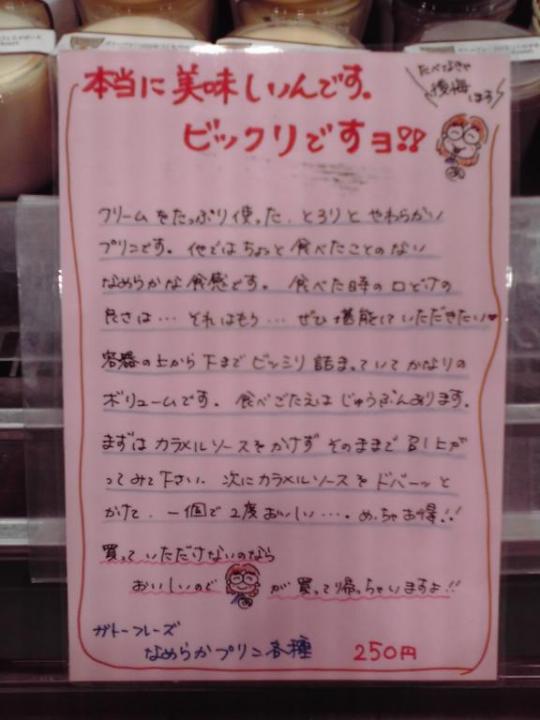 本当に美味しいんです。
ビックリですヨ!!
食べなきゃ
後悔
します
クリームをたっぷり使った、とろりとやわらかい
プリンです。他ではちょっと食べたことのない
なめらかな食感です。食べた時の口どけの
良さは… それはもう… ぜひ堪能していただきたい♥
容器の上から下までビッシリ詰まっていてかなりの
ボリュームです。食べごたえはじゅうぶんあります。
まずはカラメルソースをかけずそのままで召し上が
ってみて下さい。次にカラメルソースをドバーッと
かけて、一個で2度おいしい…。めっちゃお得!!
買っていただけないのなら
おいしいので が買って帰っちゃいますよ!!
ガトーフレーズ
なめらかプリン各種 250円